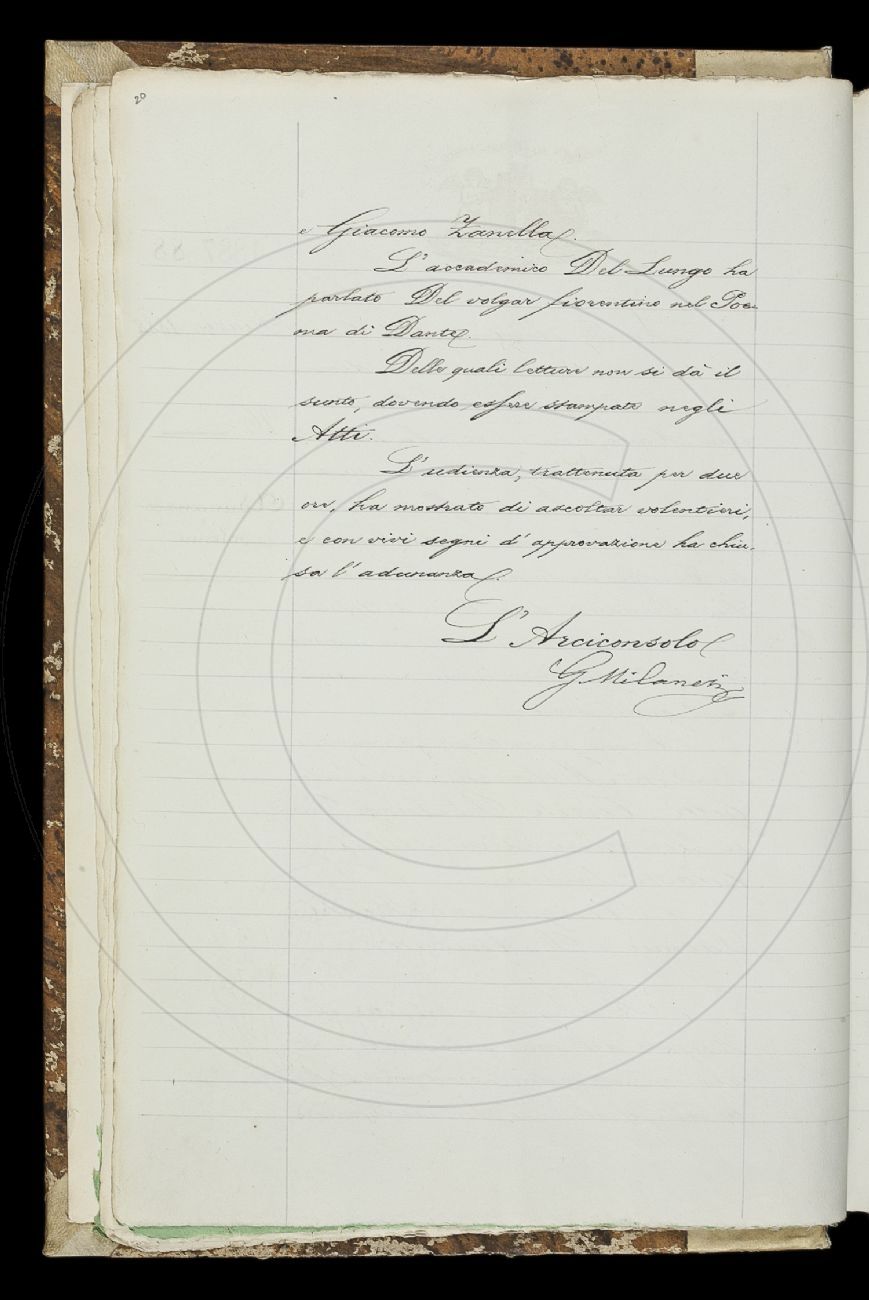 20
e Giacomo Zanella.
L'accademico Del Lungo ha
parlato Del volgar fiorentino nel Poe-
ma di Dante.
Delle quali letture non si dà il
sunto, dovendo essere stampate negli
Atti.
L'udienza, trattenuta per due
ore, ha mostrato di ascoltar volentieri,
e con vivi segni d'approvazione ha chiu-
sa l'adunanza.
L'Arciconsolo
G Milanesi